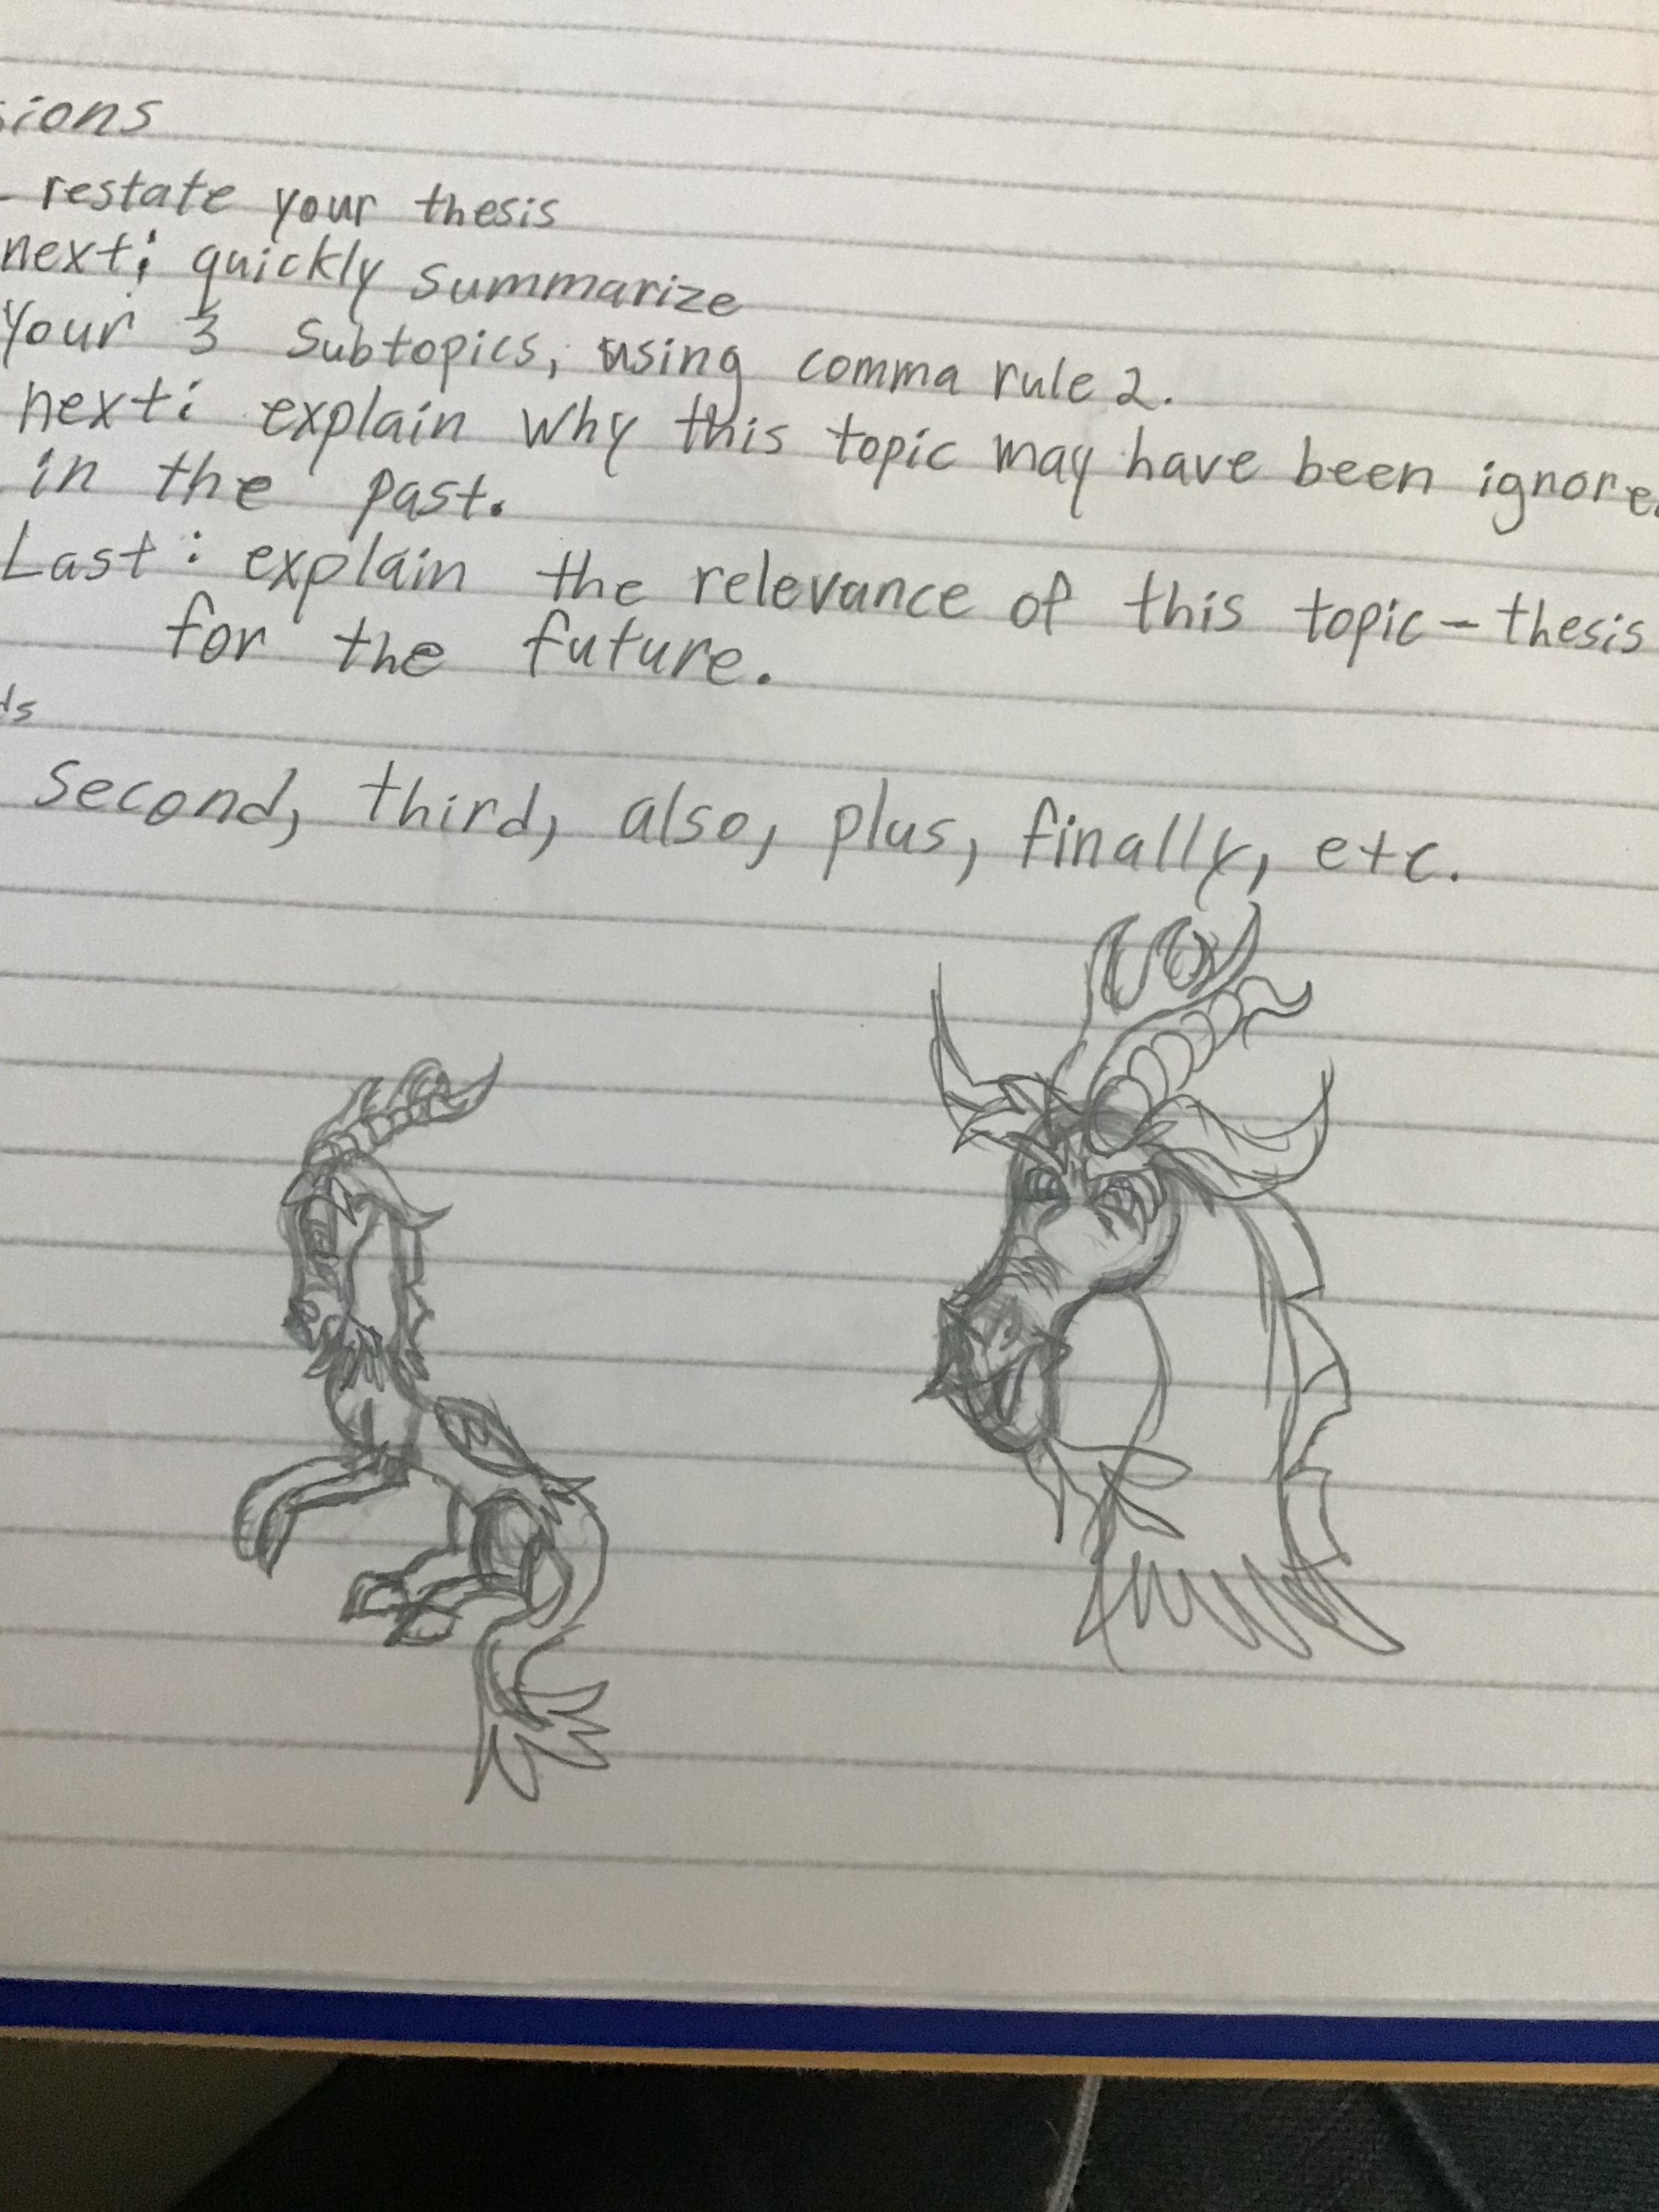 sions
- restate your thesis
next: quickly summarize
your 3 subtopics, using comma rule 2.
next: explain why this topic may have been ignore
in the past.
Last: explain the relevance of this topic - thesis
for the future.
ds
second, third, also, plus, finally, etc.